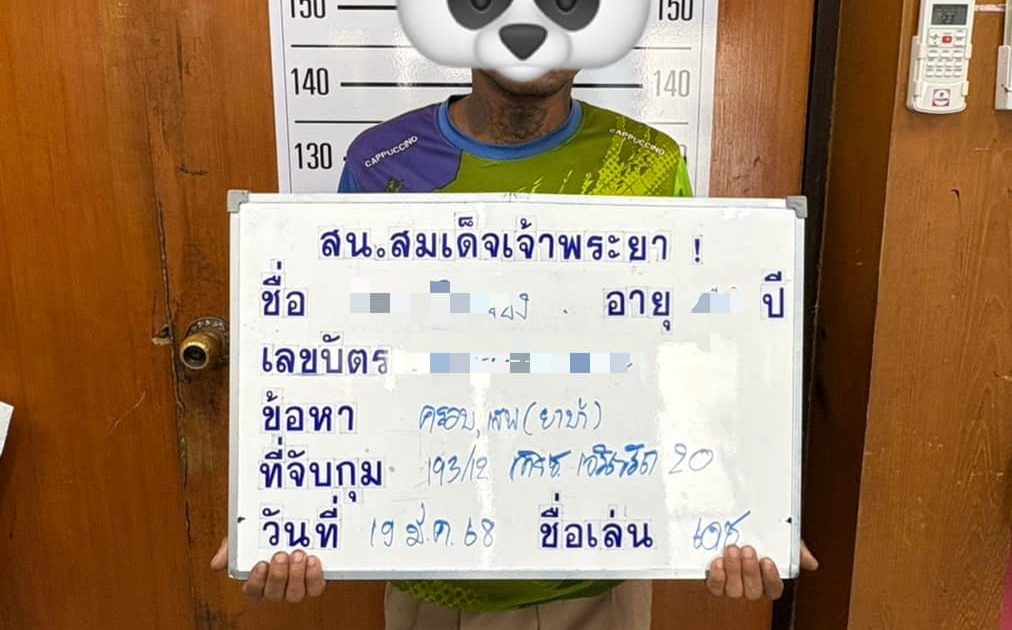 150 150
140 140
130
CAPPUCCINO CAPPUCCINO
สน.สมเด็จเจ้าพระยา !
ชื่อ อายุ ปี
เลขบัตร
ข้อหา ครอบ, เสพ (ยาบ้า)
ที่จับกุม 193/12 20
วันที่ 19 มี.ค. 68 ชื่อเล่น